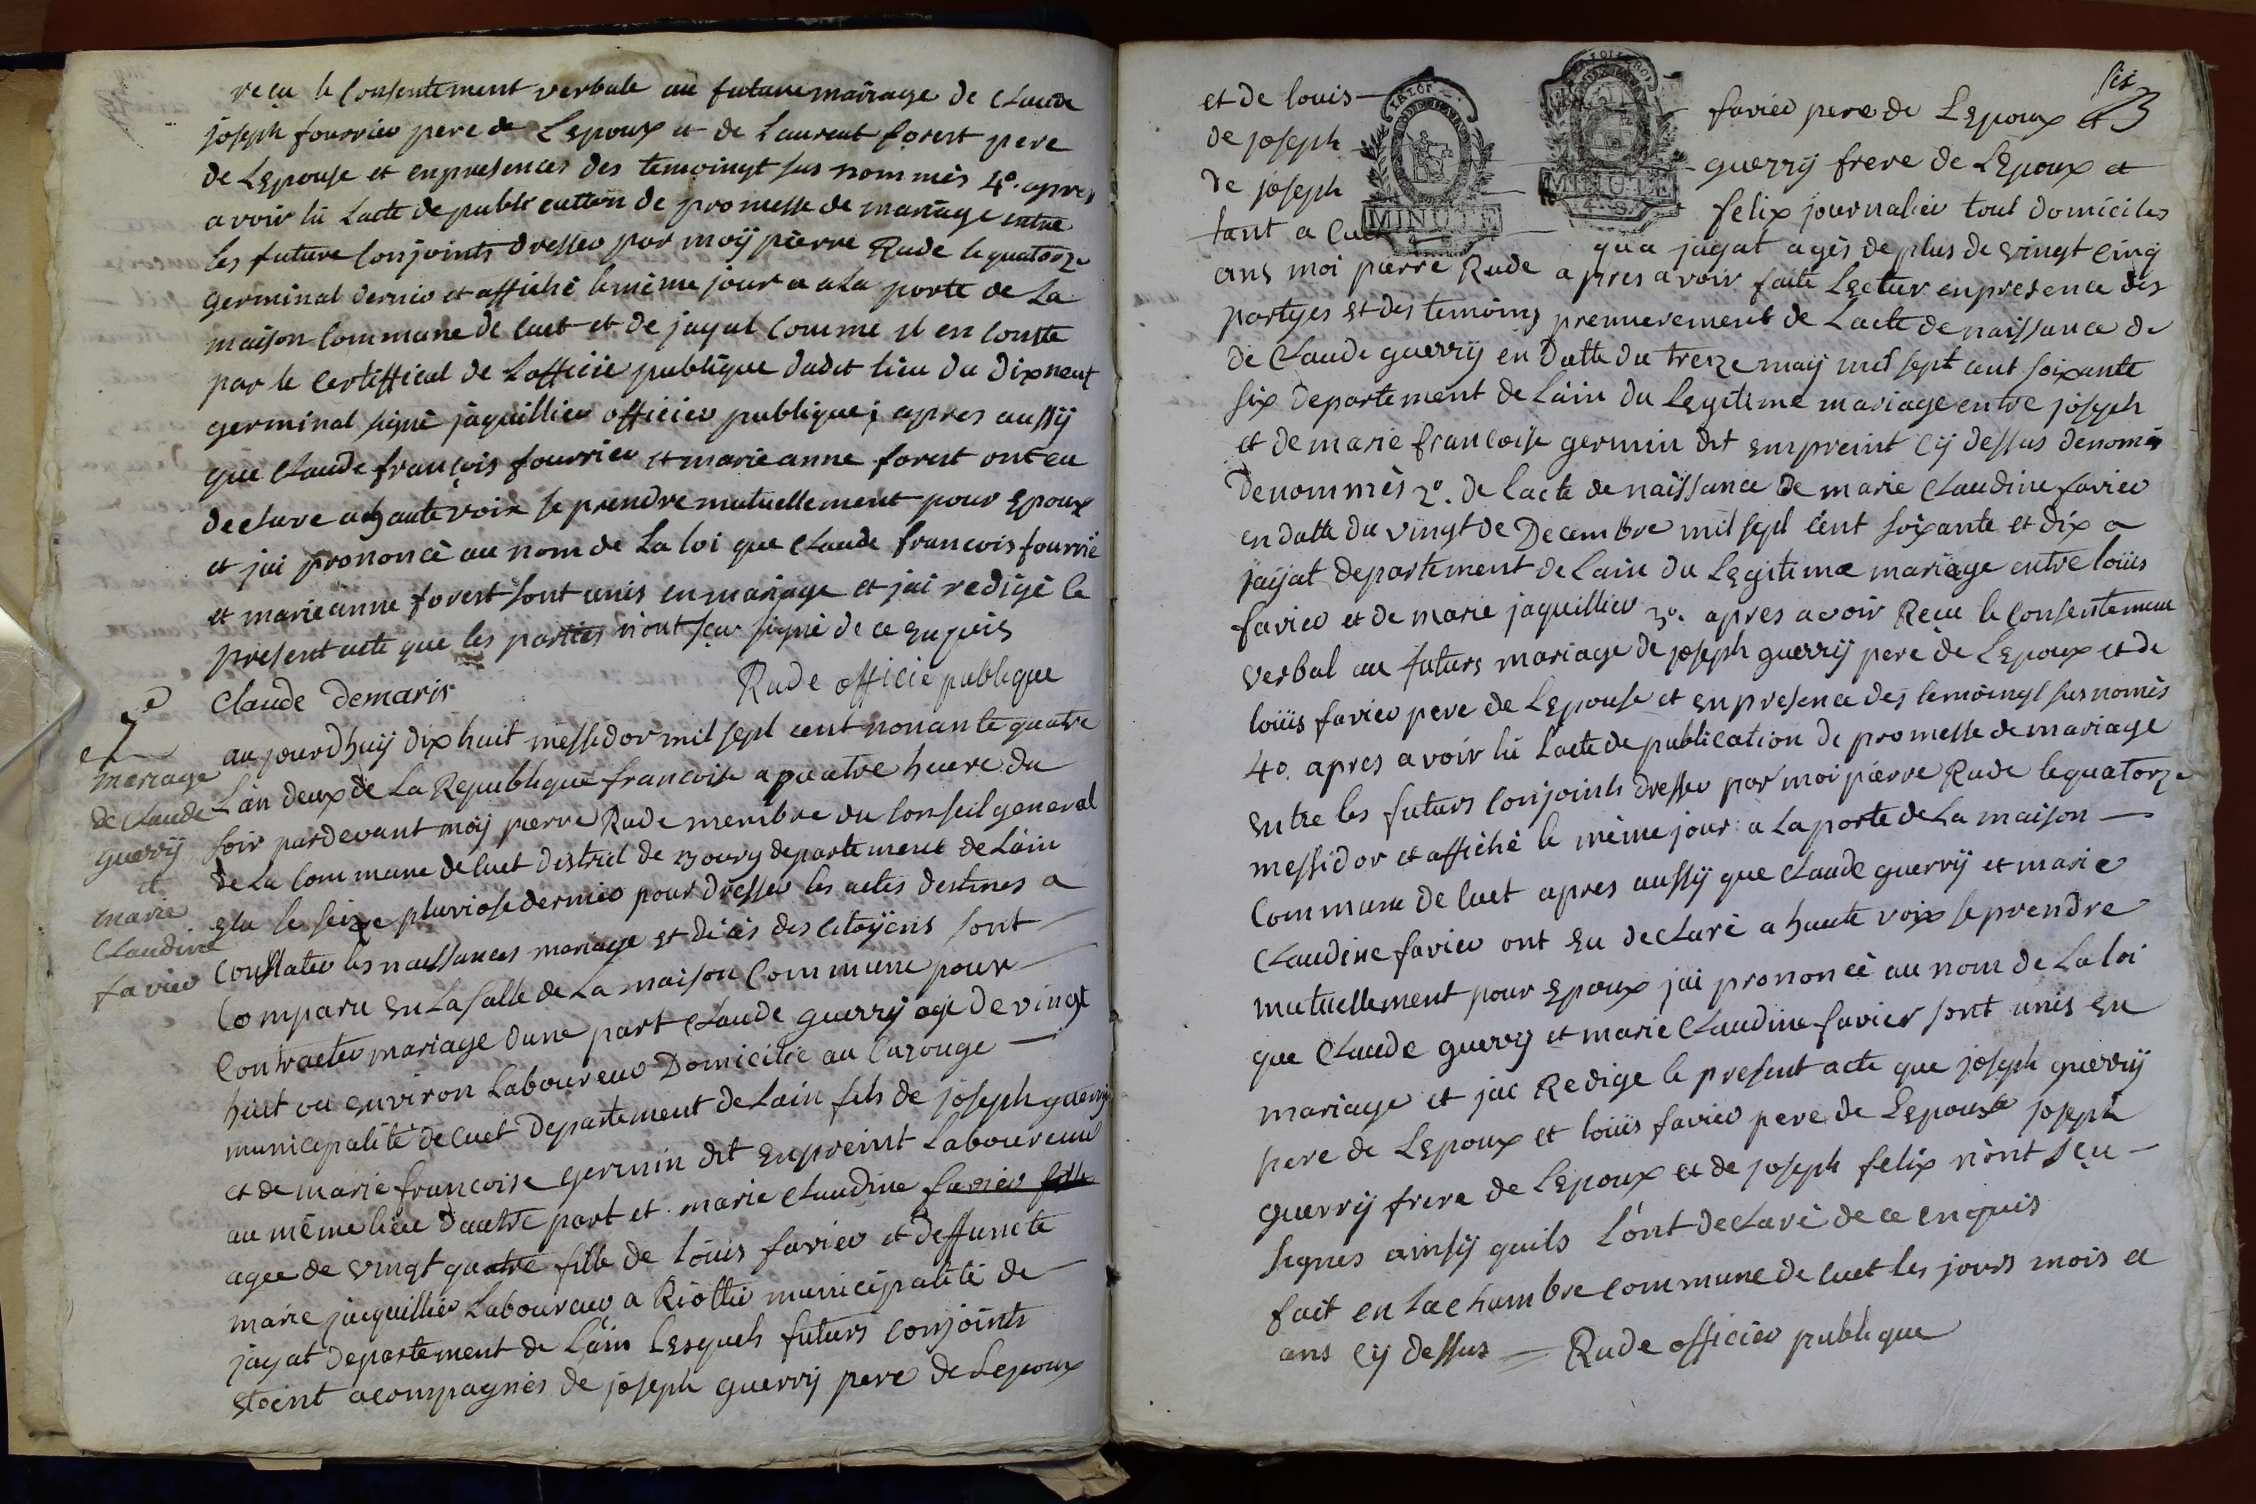 reçu le Consentement verbale au future mairage de claude
joseph fourrier pere de Lepoux et de Laurent forest pere
de Lepouse et enpresences des temoingt sus nommès 4º. apres
avoir lû Lacte de publication de promesse de mariage entre
les future Conjoints dresser par moÿ pierre Rude le quatorze
germinal dernier et affiché le même jour a a La porte de La
maison Commune de Cuet et de jayat Comme il en Conste
par le Certifficat de Lofficié publique dudit lieu du dixneuf
germinal signè jâquillier officier publique; apres aussÿ
que Claude françois fourrier et marie anne forest ont eu
declare a haute voix se prendre mutuellement pour Epoux
et jai prononcè au nom de La loi que claude francois fourrié
et marie anne forest sont unis en mariage et jai redigé le
present acte que les parties n'ont sçu signè de ce Enqueis
Claude Demaris Rude officié publique
7e
mariage
de Claude
guerrÿ
et
marie
Claudine
favier
aujourdhuÿ dix huit messidor mil sept cent nonante quatre
Lan deux de La Republique francoise a quatre heure du
soir pardevant moÿ pierre Rude membre du Conseil general
de La Commune de Cuet district de Bourg departement de Lain
elu le seize pluviose dernier pour dresser les actes destinés a
Constater les naissances mariage et décès des Citoÿens sont
Comparu en La salle de La maison Commune pour
Contracter mariage dune part Claude guerrÿ agé de vingt
huit ou environ Laboureur Domicilié au Curouge
municipalité de Cuet Departement de Lain fils de joseph guerrÿ
et de marie francoise germin dit Enpreint Laboureur
au même lieu dautre part et marie Claudine favier fille
agee de vingt quatre fille de louis favier et deffuncte
marie jaquillier Laboureur a Riottier municipalité de
jayat departement de Lain Lesquels futurs conjoints
Etoient acompagnès de joseph guerrÿ pere de Lepoux
six
3
et de louis favier pere de Lepoux et
de joseph guerrÿ frere de LEpoux et
de joseph felix journalier tout domiciles
tant a Cuet qua jayat agès de plus de vingt cinq
MINUTE
MINUTE
ans moi pierre Rude apres avoir faite Lectur enpresence des
partyes Et des temoins premierement de Lacte de naissance de
de Claude guerrÿ en datte du treize maÿ mil sept cent soixante
six departement de Lain du Legitime mariage entre joseph
et de marie francoise germin dit enpreint Cÿ dessus denomès
denommès 2º. de lacte de naissance de marie Claudine favier
en datte du vingt de Decembre mil sept cent soixante et dix a
jaÿat departement de Lain du Legitime mariage entre loüis
favier et de marie jaquillier 3º. apres avoir Recu le Consentement
verbal au futurs mariage de joseph guerrÿ peré de Lepoux et de
loüis favier pere de Lepouse et enpresence des temoingt susnomès
4º. apres avoir lû Lacte de publication de promesse de mariage
Entre les futurs Conjoints dresser par moi pierre Rude le quatorze
messidor et affiché le même jour a La porte de La maison
Commune de Cuet apres aussÿ que Claude guerrÿ et marie
Claudine favier ont Eu declaré a haute voix se prendre
mutuellement pour Epoux jai prononcè au nom de La loi
que Claude guerrÿ et marie Claudine favier sont unis en
mariage et jai Redige le present acte que joseph guerrÿ
pere de Lepoux et loüis favier pere de Lepouse joseph
guerrÿ frere de Lepoux et de joseph felix n'ont sçu
signes ainsÿ quils Lont declaré de ce enquis
fait en La chambre commune de cuet les jours mois et
ans Cÿ dessus Rude officier publique